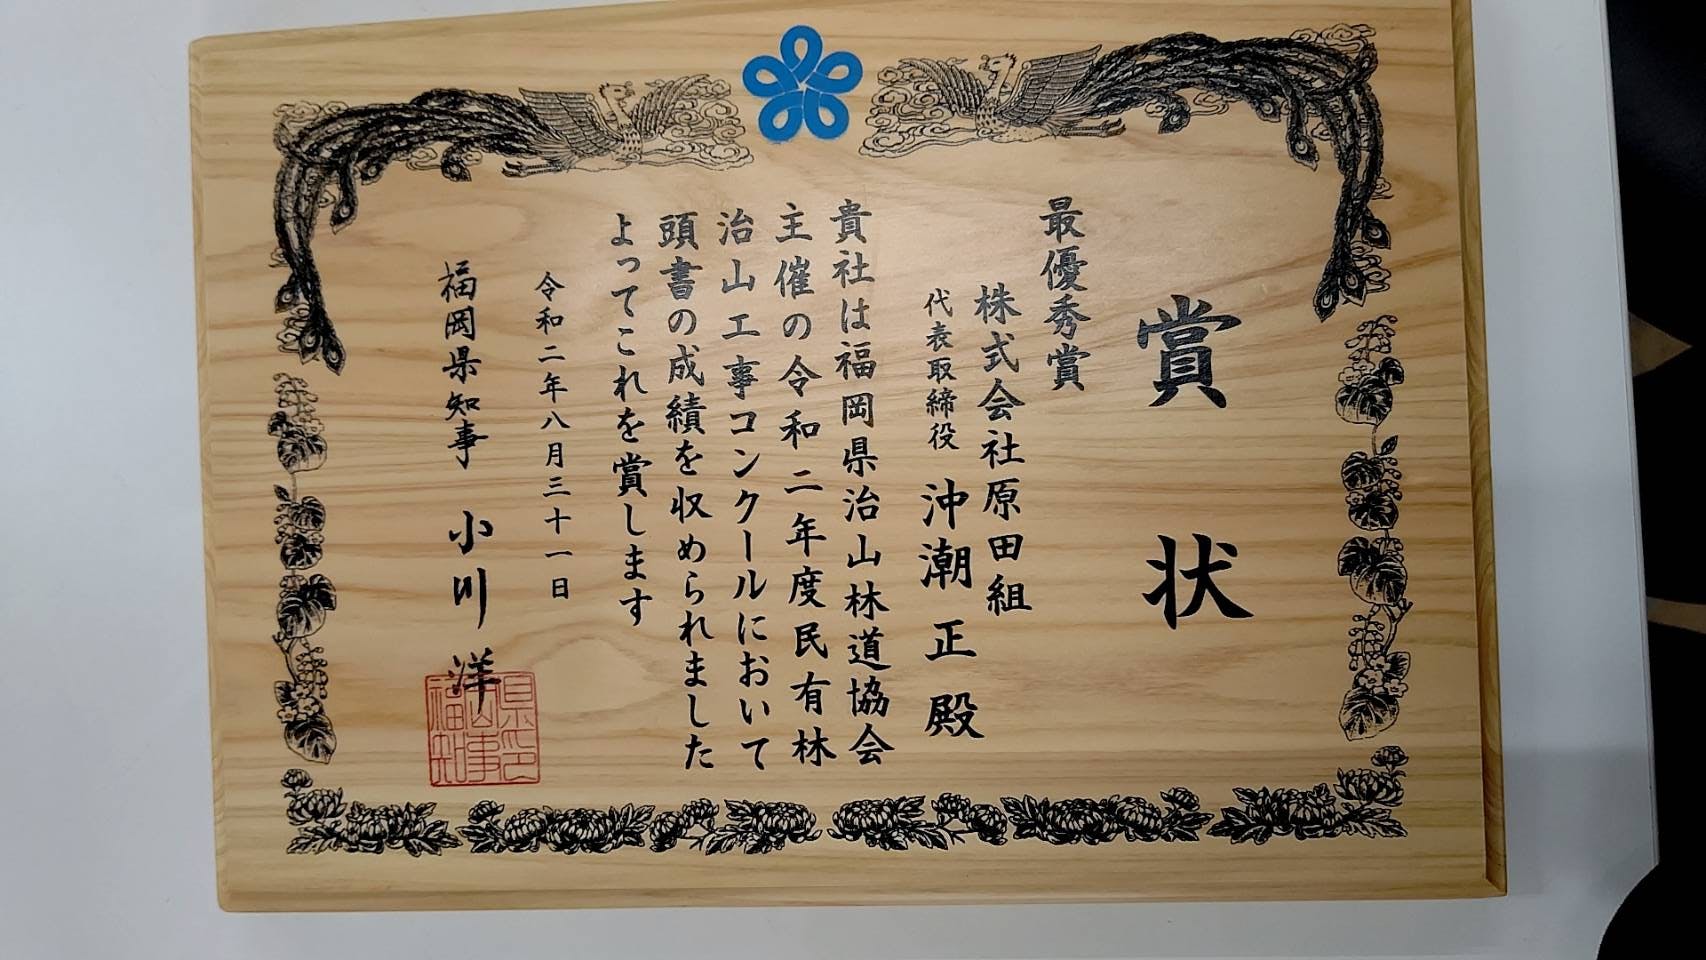 賞状
最優秀賞
株式会社原田組
代表取締役 沖潮正殿
貴社は福岡県治山林道協会
主催の令和二年度民有林
治山工事コンクールにおいて
頭書の成績を収められました
よってこれを賞します
令和二年八月三十一日
福岡県知事 小川洋